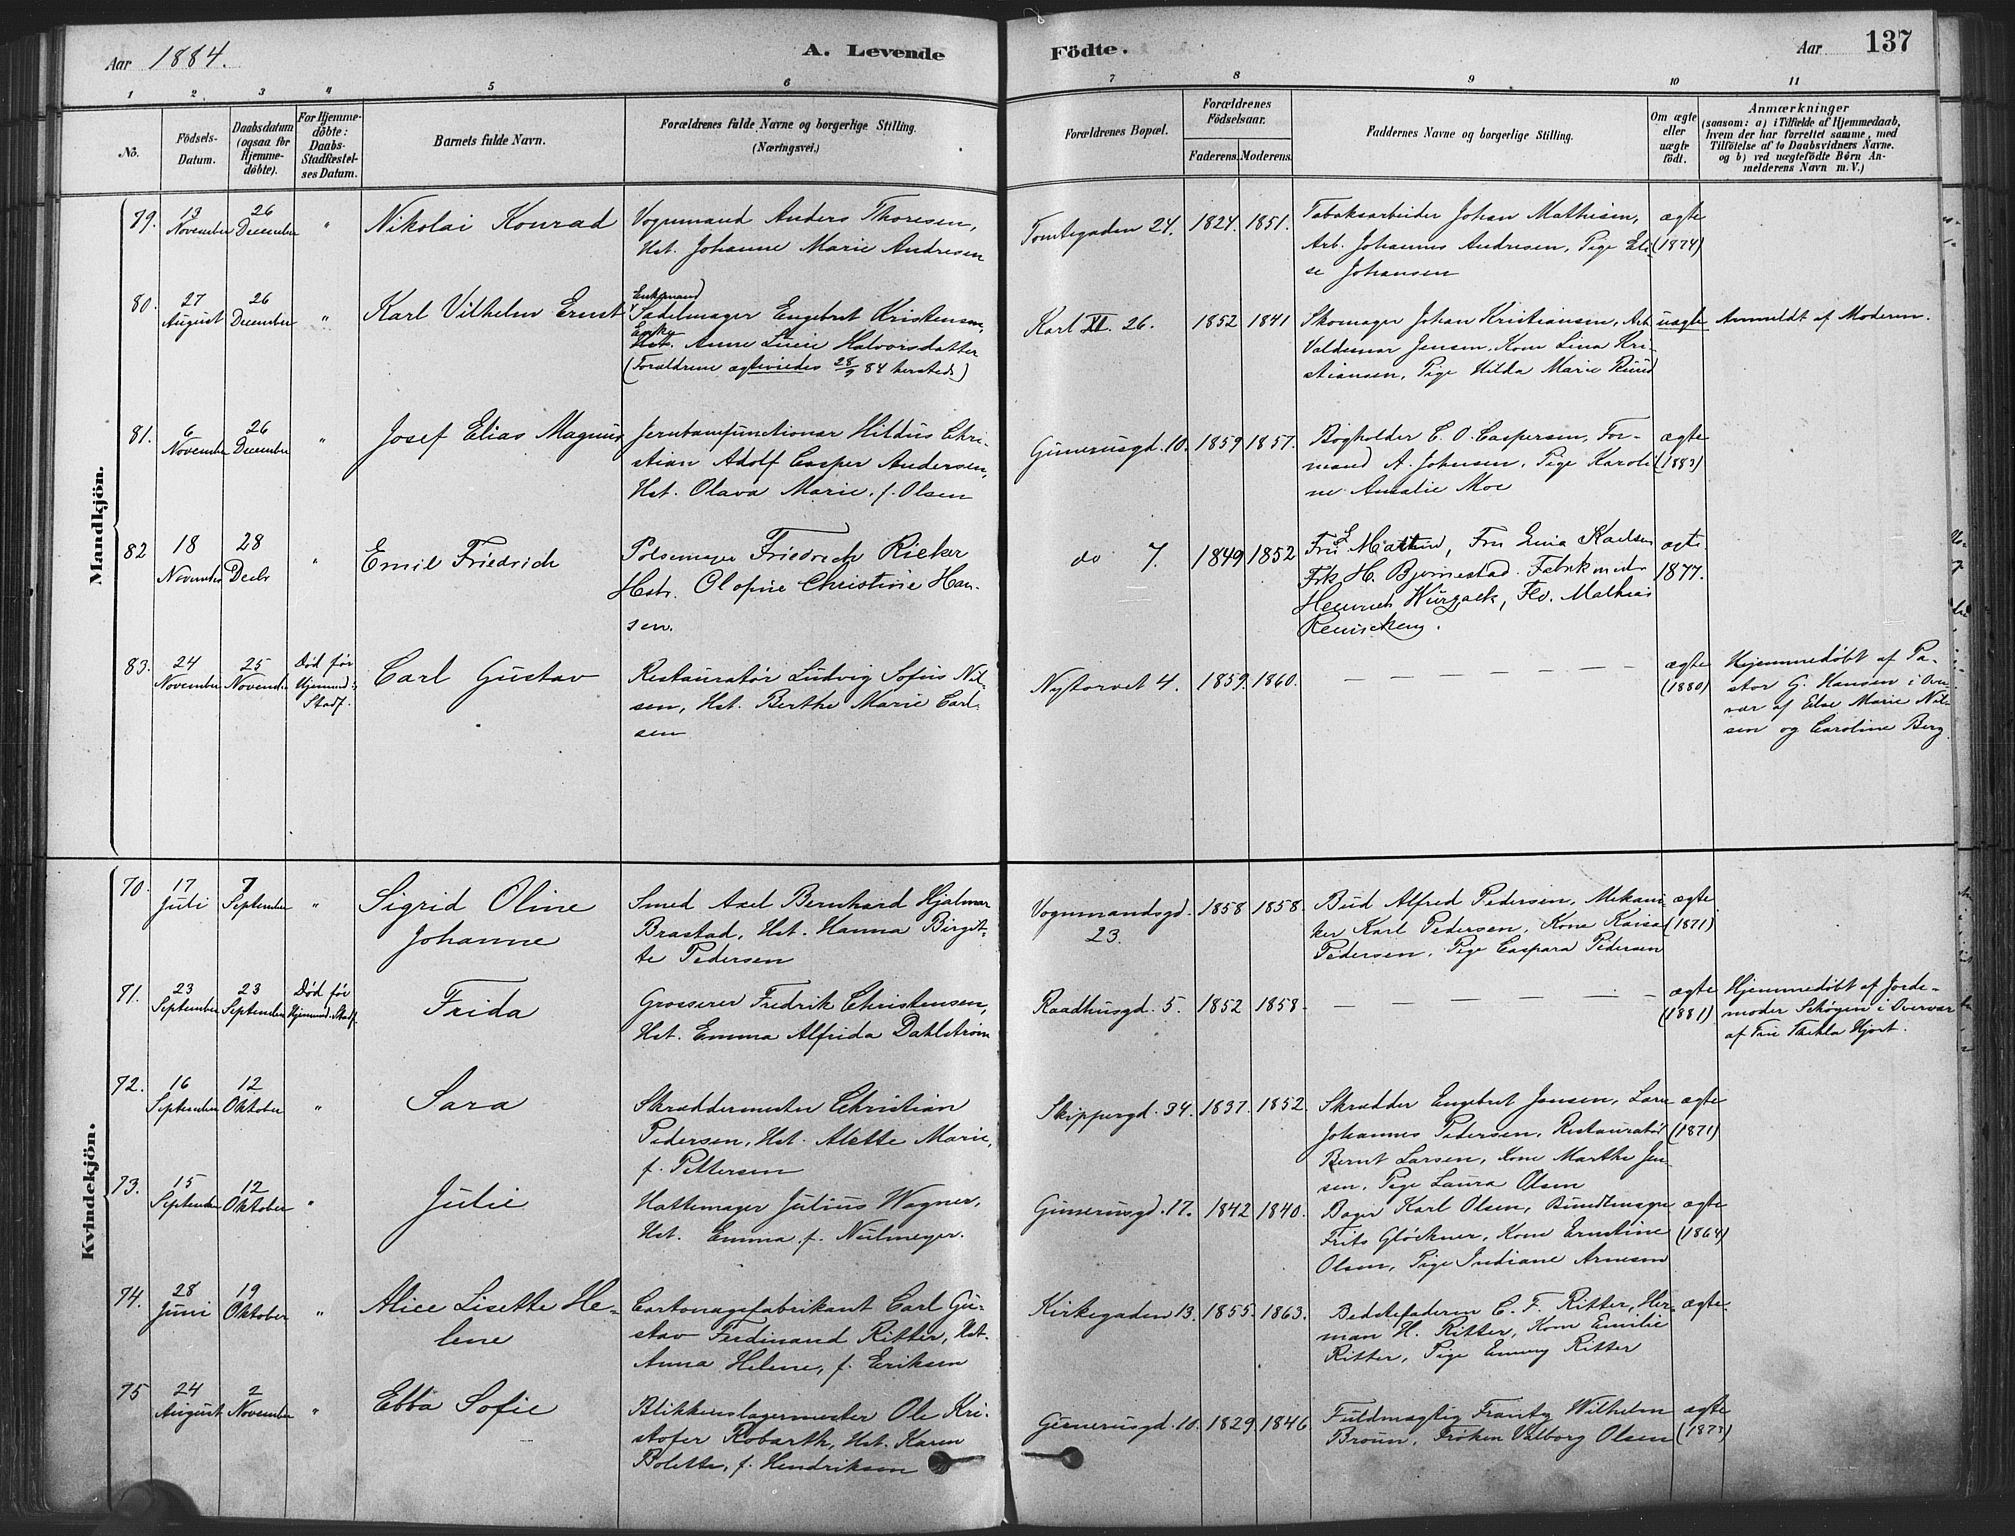 Aar 1884.
A. Levende
Födte.
Aar
137
1 2 3 4 5 6 7 8 9 10 11
No.
Födsels-
Datum.
Daabsdatum
(ogsaa for
Hjemme-
döbte).
For Hjemme-
döbte:
Daabs-
Stadfæstel-
ses Datum.
Barnets fulde Navn.
Forældrenes fulde Navne og borgerlige Stilling.
(Næringsvei.)
Forældrenes Bopæl.
Forældrenes
Födselsaar.
Faderens. Moderens.
Faddernes Navne og borgerlige Stilling.
Om ægte
eller
uægte
födt.
Anmærkninger
(saasom: a) i Tilfælde af Hjemmedaab,
hvem der har forrettet samme, med
Tilföielse af to Daabsvidners Navne.
og b) ved uægtefödte Börn An-
melderens Navn m. V.)
Mandkjön.
79.
13
November
26
December
"
Nikolai Konrad
Vognmand Anders Thoresen,
Hst. Johanne Marie Andresen
Tomtegaden 24.
1824.
1851.
Tobaksarbeider Johan Mathisen,
Arb. Johannes Andresen, Pige Eli-
se Johansen
ægte
(1874)
80.
27
August
26
December
"
Karl Vilhelm Ernst
Enkemand
Sadelmager Engebret Kristensen,
Enke
Hst. Anne Lucie Halvorsdatter
(Forældrene ægteviedes 28/9 84 hersteds)
Karl XII. 26.
1852
1841
Skomager Johan Kristiansen, Arb
Valdemar Jensen, Kone Lina Kri-
stiansen, Pige Hilda Marie Ruud
uægte
Anmeldt af Moderen.
81.
6
November
26
December
"
Josef Elias Magnus
Jernbanefunctionær Hildus Chri-
stian Adolf Casper Andersen,
Hst. Olava Marie, f. Olsen
Gunerusgd. 10.
1859
1857.
Bogholder C. O. Caspersen, For-
mand A. Johnsen, Pige Karoli
ne Amalie Moe
ægte
(1883)
82
18
November
28
Decbr
"
Emil Friedrich
Pølsemager Friedrich Rieker
Hstr. Olofine Christine Han-
sen.
do 7.
1849
1852
Frk H. Bjørnestad.
ægte
1877.
83.
24
November
25
November
Død før
Hjemmed:
Stadf.
Carl Gustav
Restauratør Ludvig Sofus Nil-
sen, Hst. Berthe Marie Carl-
sen
Nytorvet 4.
1859.
1860.
— — — — — —
ægte
(1880)
Hjemmedøbt af Pa-
stor G. Hansen i Over
vær af Else Marie Nil-
sen og Caroline Berg.
Kvindekjön.
70.
17
Juli
7
September
"
Sigrid Oline
Johanne
Smed Axel Bernhard Hjalmar
Brastad, Hst. Hanna Birgit-
te Pedersen
Vognmandsgd.
23.
1858
1858.
Bud Alfred Pedersen, Mekani-
ker Karl Pedersen, Kone Kaisa
Pedersen, Pige Caspara Pedersen
ægte
(1871)
71.
23
September
23
September
Død før
Hjemmed. Stadf.
Frida
Grosserer Fredrik Christensen,
Hst. Emma Alfrida Dahlstrøm
Raadhusgd. 5.
1852
1858.
— — — — — —
ægte
(1881)
Hjemmedøbt af Jorde-
moder Skøgen i Overvær
af Fru Thekla Hjort.
72.
16
September
12
Oktober
"
Sara
Skræddermester Christian
Pedersen, Hst. Alette Marie,
f. Pettersen
Skippergd. 34.
1837.
1852.
Skrædder Engebret Jensen,
Johannes Pedersen, Restauratør
Bernt Larsen, Kone Marthe Jen-
sen, Pige Laura Olsen
ægte
(1871)
73.
15
September
12
Oktober
"
Julie
Hattemager Julius Wagner,
Hst. Emma f. Neilmeyer.
Gunerusgd. 17.
1842
1840.
Bager Karl Olsen, Bundtmager
Frits Gløckner, Kone Ernstine
Olsen, Pige Indiane Arnesen
ægte
(1864)
74.
28
Juni
19
Oktober
"
Alice Lisette He-
lene
Cartonagefabrikant Carl Gu-
stav Ferdinand Ritter, Hst.
Anna Helene, f. Eriksen
Kirkegaden 13.
1855.
1863.
Bedstefaderen C. F. Ritter, Her-
man H. Ritter, Kone Emilie
Ritter, Pige Emmy Ritter
ægte.
75
24
August
2
November
"
Ebba Sofie
Blikkenslagermester Ole Kri-
stofer Robarth, Hst. Karen
Bolette, f. Hendriksen
Gunerusgd. 10.
1829.
1846
Fuldmægtig Frantz Wilhelm
Broun, Frøken Valborg Olsen
ægte